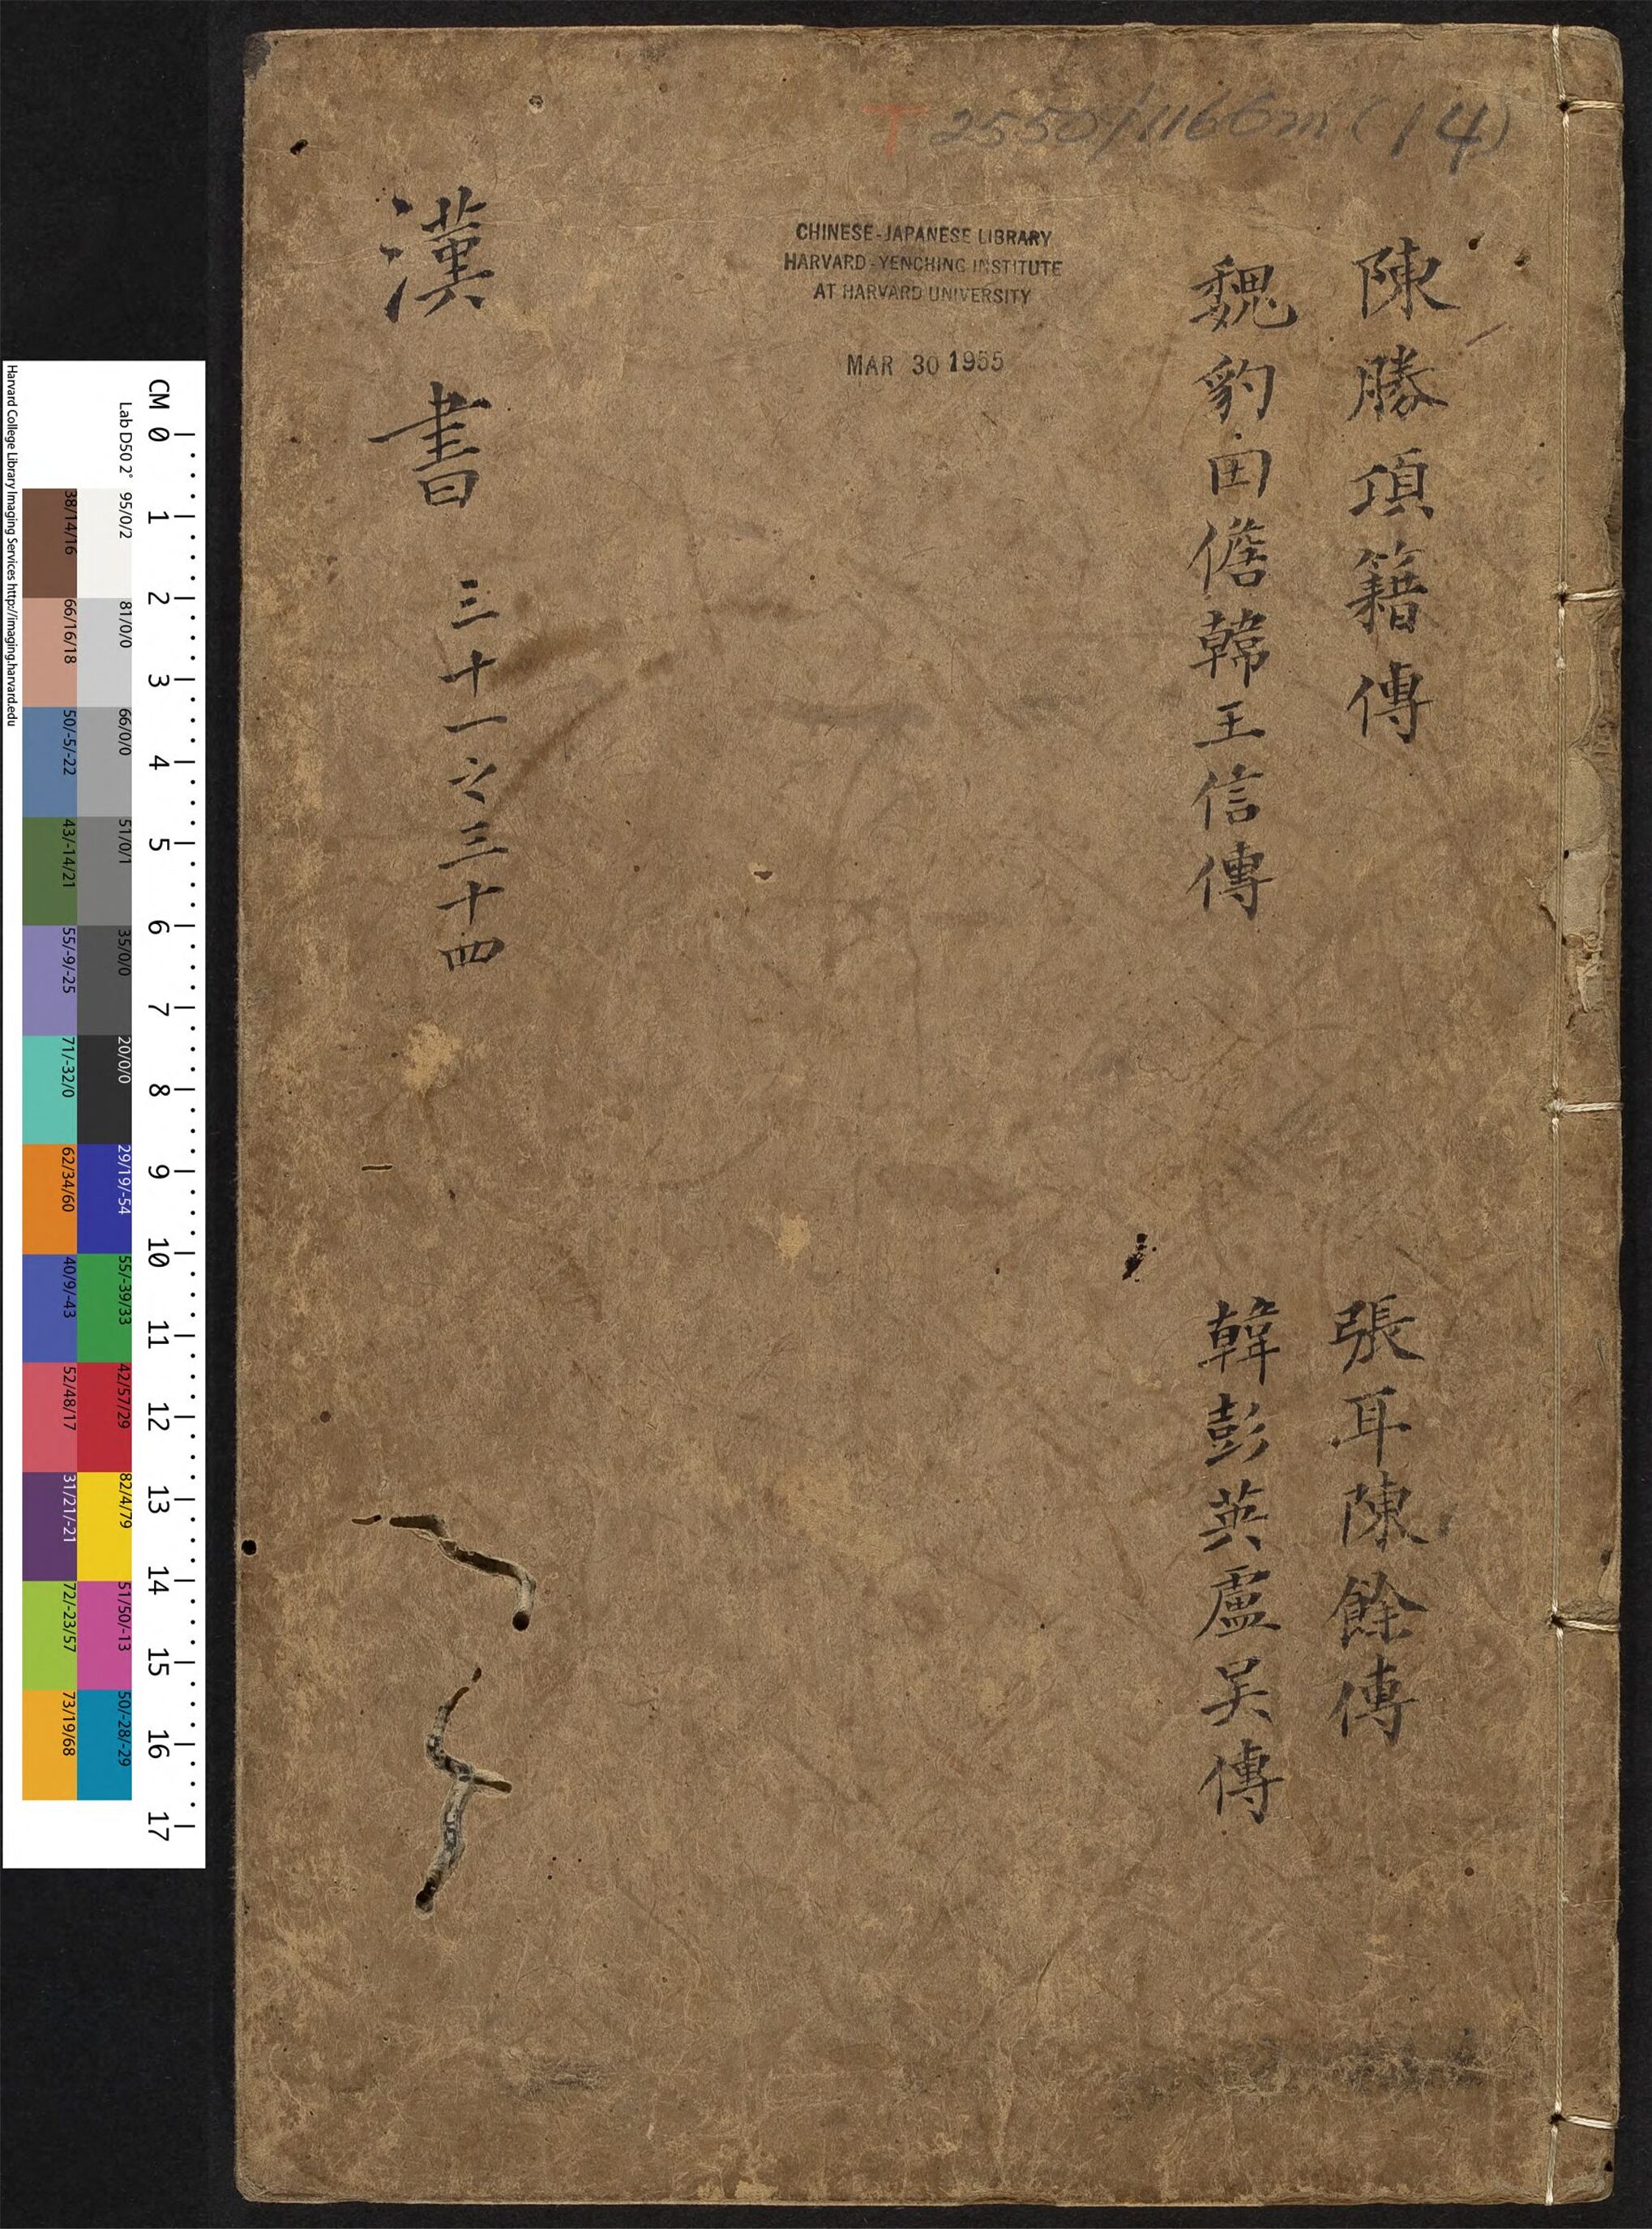 T 2550/1166m(14)
CHINESE-JAPANESE LIBRARY
HARVARD-YENCHING INSTITUTE
AT HARVARD UNIVERSITY
MAR 30 1955
陳勝項籍傳
張耳陳餘傳
魏豹田儋韓王信傳
韓彭英盧吳傳
漢書 三十一之三十四
CM 0 1 2 3 4 5 6 7 8 9 10 11 12 13 14 15 16 17
Lab D50 2° 95/0/2 81/0/0 66/0/0 51/0/1 35/0/0 20/0/0 29/19/-54 55/-39/33 42/57/29 82/4/79 51/50/-13 50/-28/-29
38/14/16 66/16/18 50/-5/-22 43/-14/21 55/-9/-25 71/-32/0 62/34/60 40/9/-43 52/48/17 31/21/-21 72/-23/57 73/19/68
Harvard College Library Imaging Services http://imaging.harvard.edu